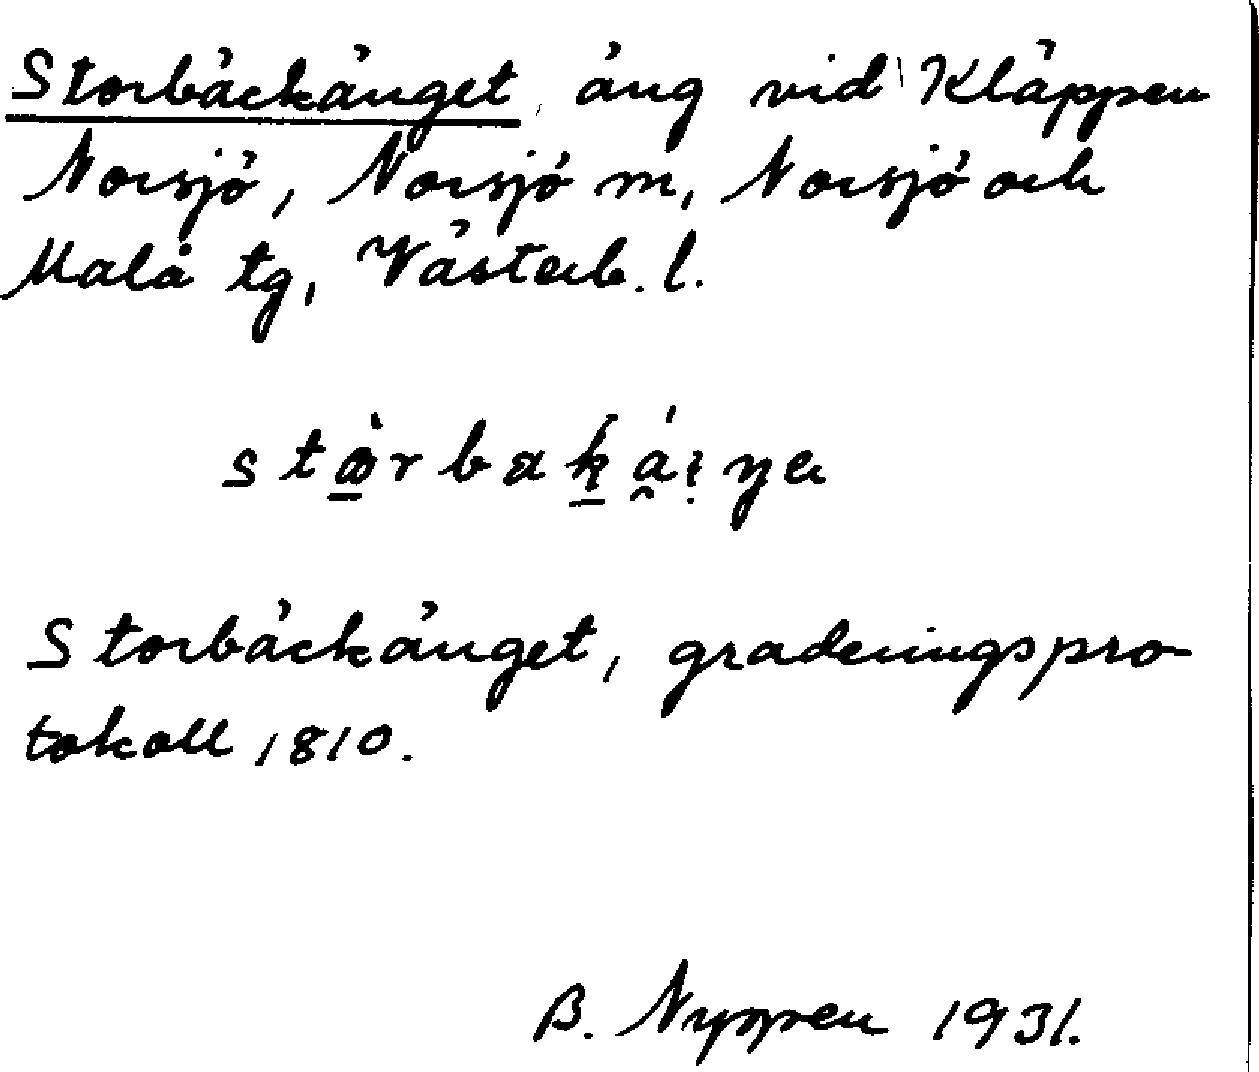 Storbäckänget, äng vid Kläppen
Norsjö, Norsjö m, Norsjö och
Malå tg, Västerb. l.
Storbäckänget, graderingspro-
tokoll 1810.
B. Nyppen 1931.